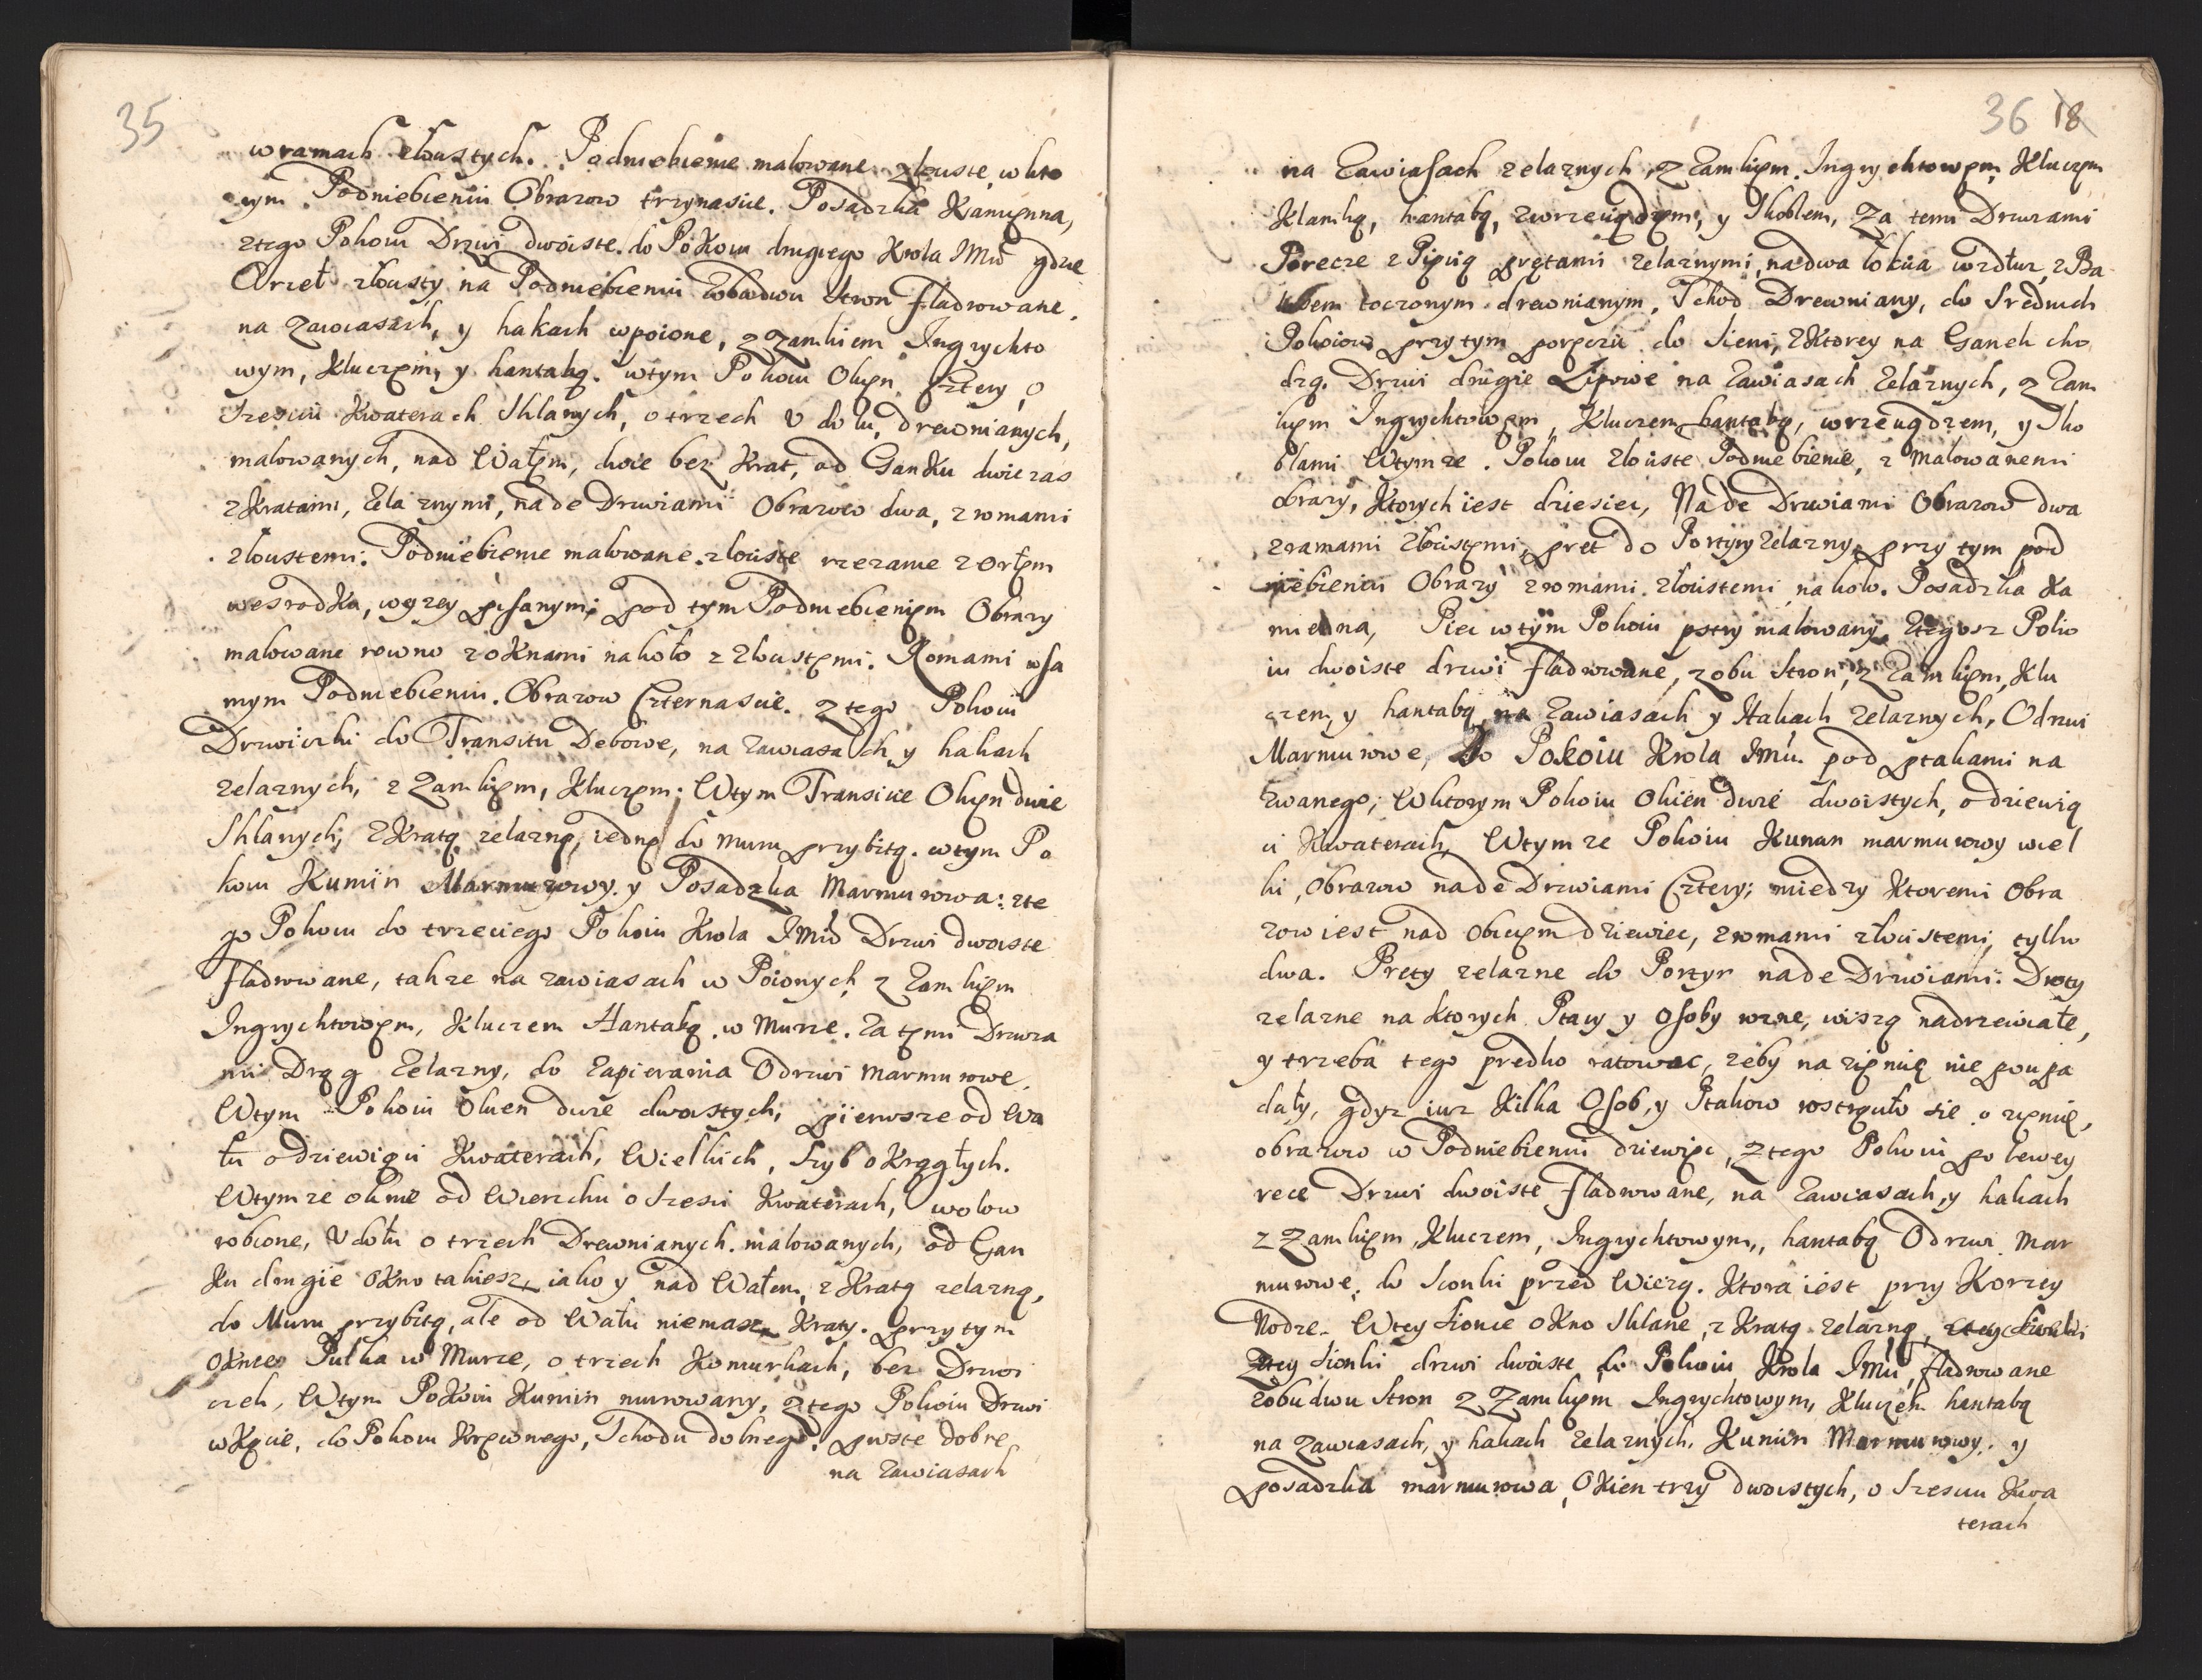 35
w ramach złoustych. Podniebienie malowane złouste, w kto
rym Podniebieniu Obrazow trzynascie. Posadzka Kamięnna,
z tego Pokoiu Drzwi dwoiste do Pokoiu drugiego Krola IMci gdzie
Orzeł złousty na Podniebieniu Zobudwu Stron fladrowane.
na Zawiasach, y hakach wpoione, z Zamkiem Ingrychto
wym, Kluczęm, y hantabą. w tym Pokoiu Okięn cztery o
Szesciu Kwaterach Sklanych, o trzech v dołu, drewnianych,
malowanych, nad Wałęm, dwie bez Krat, od Ganku dwie zas
z Kratami, Zelaznymi, nade Drzwiami Obrazow dwa, z romami
złoustemi. Podniebienie malowane. złouste rzezane z orłęm
we srodku, węzey pisanymi, pod tym Podniebienięm Obrazy
malowane rowno z oknami nakoło z złoustęmi. Romami w sa
mym Podniebieniu. Obrazow Czternascie. z tego Pokoiu
Drzwiczki do Transitu Debowe, na zawiasach, y hakach
zelaznych, z Zamkięm, Kluczęm; W tym Transicie Okięn dwie
Sklanych, z Kratą zelazną, iedną do muru przybitą. w tym Po
koiu Kumin Marmurowy. y Posadzka Marmurowa: z te
go Pokoiu do trzeciego Pokoiu Krola IMci Drzwi dwoiste
fladrowane, takze na zawiasach w Poionych z Zamkięm
Ingrychtowęm, Kluczem Hantabą. w Murze. Za tęmi Drzwia
mi Drąg Zelazny, do Zapierania Odrzwi marmurowe.
W tym Pokoiu Okien dwie dwoistych, pierwsze od Wa
łu o dziewięci Kwaterach, Wielkich, Szyb okrągłych.
W tymze oknie od Wierzchu o Szesci Kwaterach, w olow
robione, V dołu o trzech Drewnianych. malowanych, od Gan
ku drugie okno takiesz, iako y nad Wałem, z Kratą zelazną,
do Muru przybitą, ale od Wału niemasz Kraty. przy tym
oknie Pułka w Murze, o trzech Komurkach, bez Drzwi
czek, W tym Pokoiu Kumin murowany, z tego Pokoiu Drzwi
w Kącie, do Pokoiu Kręwnego, Schodu dolnego. proste dobre
na Zawiasach
36 18
na Zawiasach zelaznych, z Zamkięm. Ingrychtowęm, Kluczęm
Klamką, hantabą, z wrzeciądzęm, y Skoblem, Za temi Drzwiami
Porecze z Pięcią prętami zelaznymi, na dwa łokcia wzdłuz, z Ba
lasem toczonym drewnianym, Schod Drewniany, do Srednich
Pokoiow przy tym poręczu do Sieni, z Ktorey na Ganek cho
dzą. Drzwi drugie Lipowe na Zawiasach Zelaznych, z Zam
kięm Ingrychtowęm, Kluczem hantabą, wrzeciądzem, y Sko
blami W tymze. Pokoiu złouste Podniebienie, z malowanemi
obrazy, Ktorych iest dziesiec, Nade Drzwiami Obrazow dwa
z ramami złoustęmi, pret do Portyry zelazny, przy tym pod
niebieniu Obrazy z romami. złoistemi, nakoło. Posadzka Ka
mienna, Piec w tym Pokoiu pstry malowany, z tegosz Poko
iu dwoiste drzwi fladrowane, z obu stron, z Zamkięm, Klu
czem, y hantabą, na Zawiasach y Hakach zelaznych, Odrzwi
Marmurowe, do Pokoiu Krola IMci. pod ptakami na
zwanego; W ktorym Pokoiu Okien dwie dwoistych, o dziewią
ci Kwaterach, W tymze Pokoiu Kunan marmurowy wiel
ki, obrazow nade Drzwiami Cztery; miedzy Ktoremi Obra
zow iest nad obiciem dziewiec, z romami złoistemi, tylko
dwa. Prety zelazne do Portyr nade Drzwiami: Droty
zelazne na ktorych Ptacy y osoby rozne, wiszą nadrzewiałe,
y trzeba tego predko ratowac, zeby na zięmię nie poupa
dały, gdyz iuz Kilka Osob, y Ptakow rostrąciło sie o zięmię,
obrazow w Podniebieniu dziewięc, z tego Pokoiu po lewey
rece Drzwi dwoiste fladrowane, na Zawiasach, y hakach
z Zamkięm, Kluczem, Ingrychtowym, hantabą Odrzwi. mar
murowe, do Sionki przed Wiezą. Ktora iest przy Korzey
Nodze. W tey Sionce okno Sklane, z Kratą zelazną,
z tey Sionki drzwi dwoiste do Pokoiu Krola IMci, fladrowane
zobudwu Stron z Zamkięm Ingrychtowym, Kluczem hantabą
na zawiasach, y hakach zelaznych. Kumin Marmurowy. y
posadzka marmurowa, Okien trzy dwoistych, o Szesciu Kwa
terach